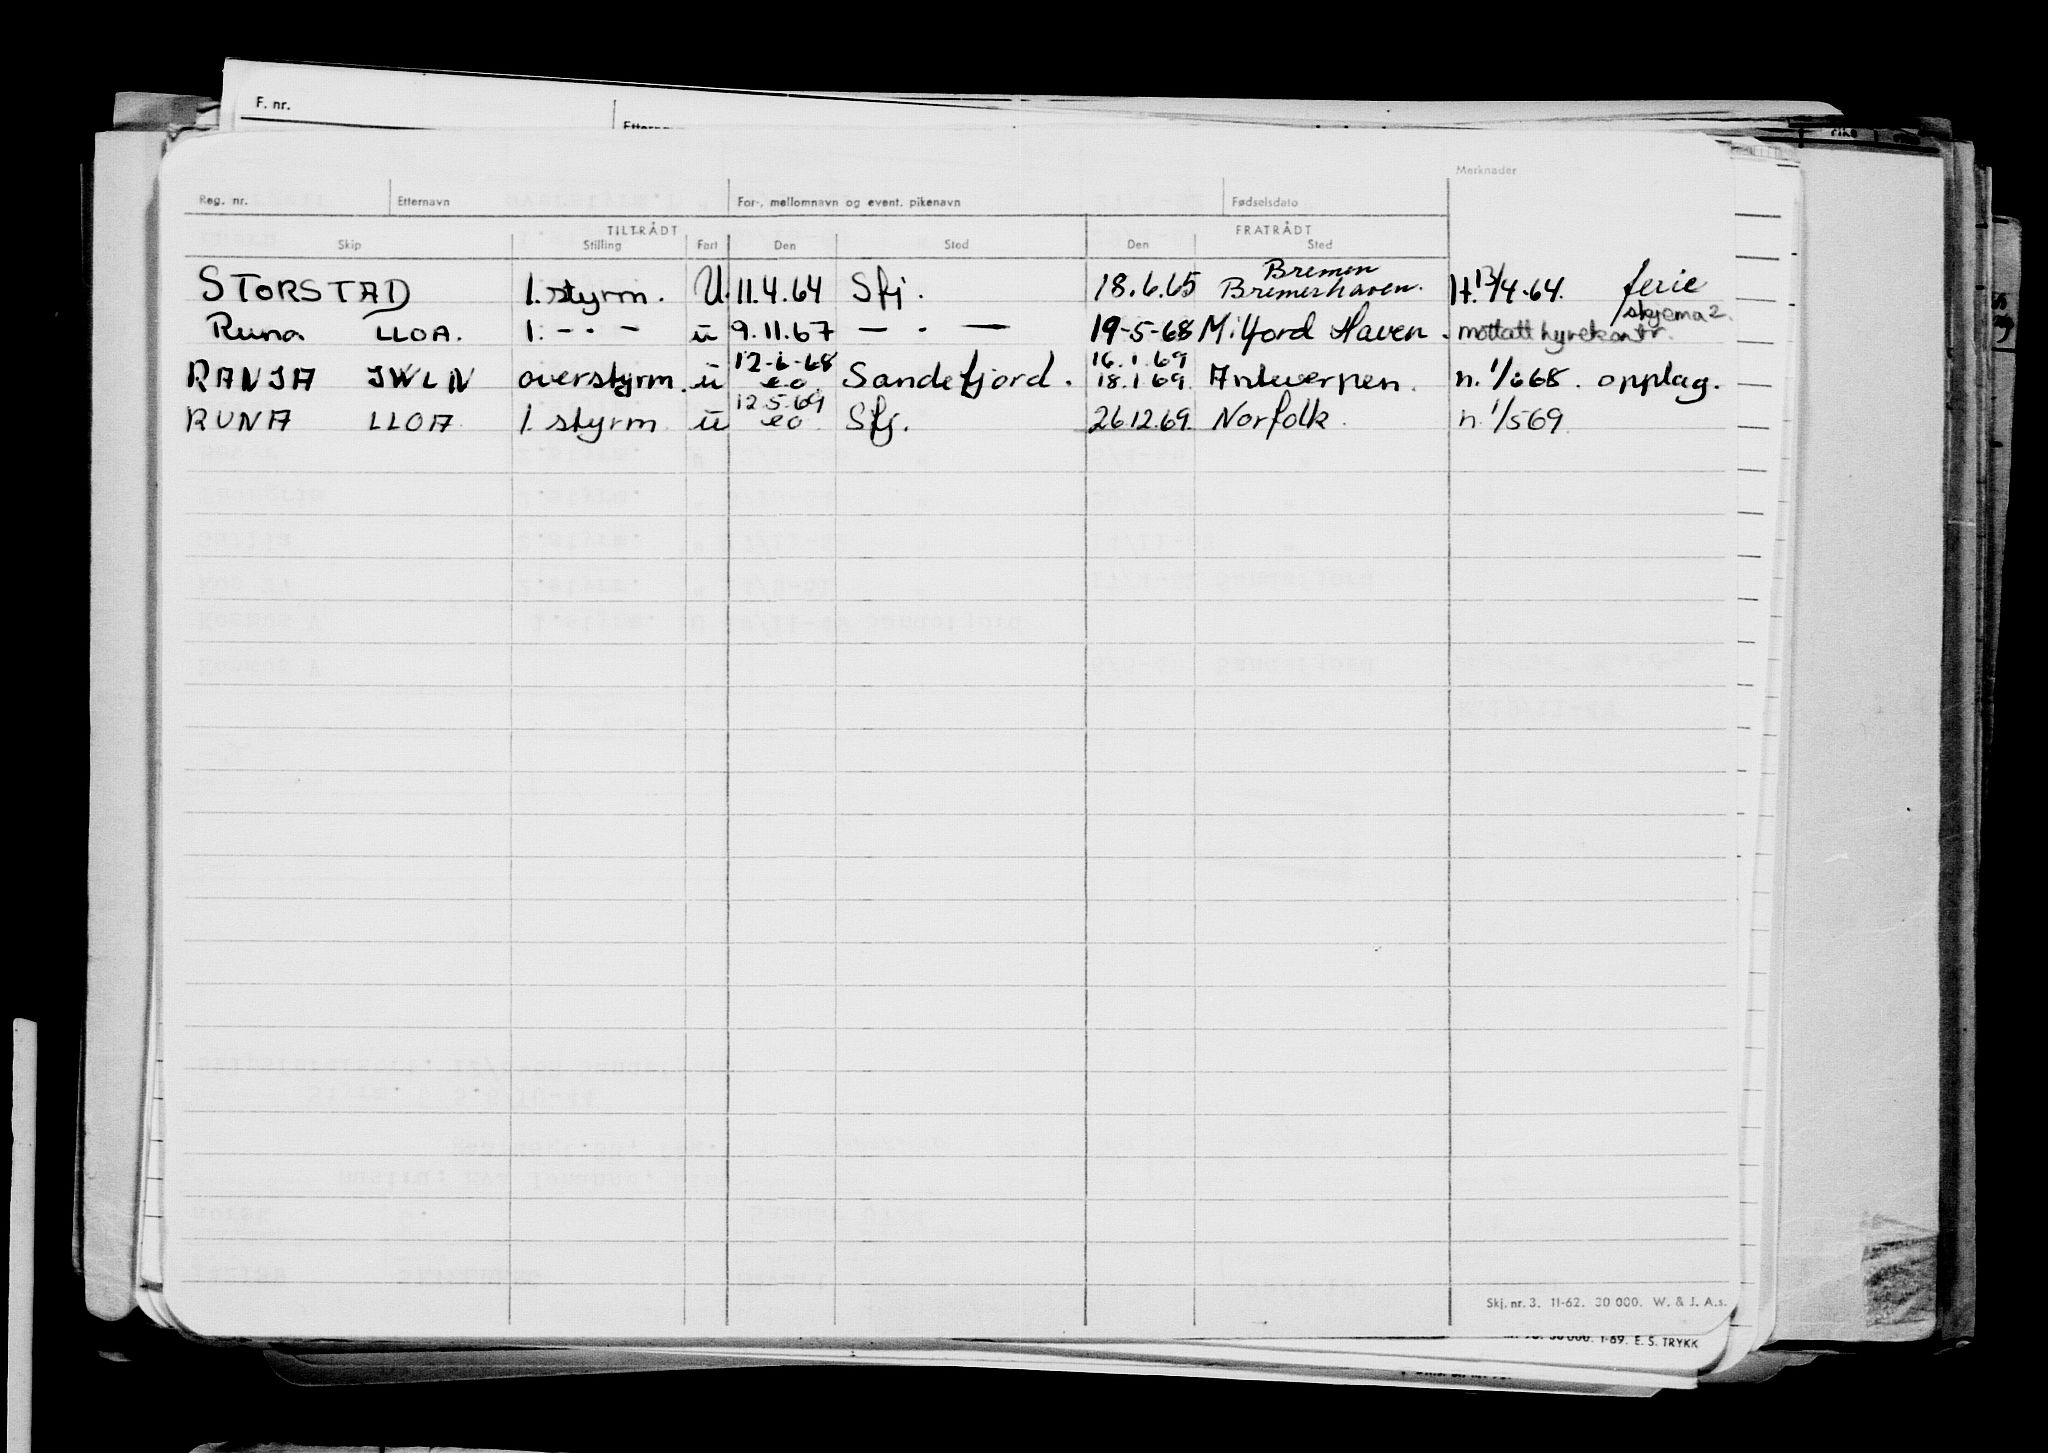 F. nr.
Merknader
Reg. nr. Etternavn For-, mellomnavn og event. pikenavn Fødselsdato
TILTRÅDT FRATRÅDT
Skip Stilling Fart Den Sted Den Sted
Bremen
STORSTAD 1. styrm. U. 11.4.64 Sfj. 18.6.65 Bremerhaven. H.13/4-64. ferie
skjema 2.
Runa LLOA. 1. - . - u 9.11.67 — . — 19-5-68 Milford Haven. mottatt hyrekontr.
12-6-68 16.1.69
RANJA JWLN overstyrm. u eo. Sandefjord. 18.1.69. Antwerpen. n. 1/668. opplag.
12.5.69
RUNA LLOA 1. styrm u eo. Sfj. 26.12.69. Norfolk. n. 1/569
Skj. nr. 3. 11-62. 30 000. W. & J. A.s.
30 000. 1-69. E. S. TRYKK